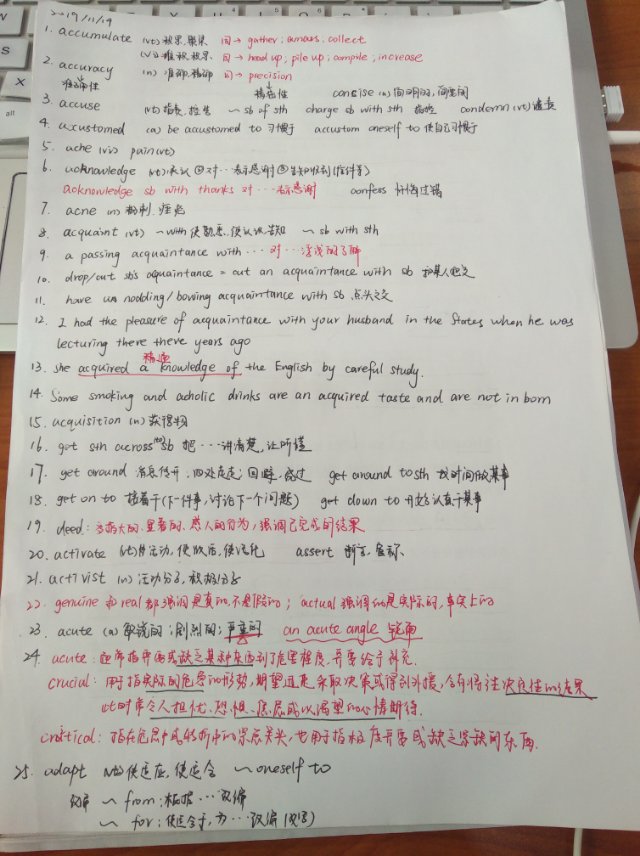 2019/11/19
1. accumulate (vt) 积累,聚集 同→ gather; amass; collect
(vi) 堆积,积累 同→ heap up; pile up; compile; increase
2. accuracy (n) 准确,精确 同→ precision
准确性 精密性 concise (a) 简明的,简洁的
3. accuse (vt) 指责,控告 ~ sb of sth charge sb with sth 指控 condemn (vt) 谴责
4. accustomed (a) be accustomed to 习惯于 accustom oneself to 使自己习惯于
5. ache (vi) pain (vt)
6. acknowledge (vt) ①承认 ②对…表示感谢 ③告知收到(信件等)
acknowledge sb with thanks 对…表示感谢 confess 忏悔过错
7. acne (n) 粉刺,痤疮
8. acquaint (vt) ~ with 使熟悉,使认识,告知 ~ sb with sth
9. a passing acquaintance with … 对…浮浅的了解
10. drop/cut sb's acquaintance = cut an acquaintance with sb 与某人绝交
11. have a nodding/bowing acquaintance with sb 点头之交
12. I had the pleasure of acquaintance with your husband in the States when he was
lecturing there there years ago
13. she acquired a knowledge of the English by careful study.
精通
14. Some smoking and acholic drinks are an acquired taste and are not in born
15. acquisition (n) 获得物
16. got sth across to sb 把…讲清楚,让听懂
17. get around 消息传开,四处走走;回避,绕过 get around to sth 找时间做某事
18. get on to 接着干(下一件事,讨论下一个问题) get down to 开始认真干某事
19. deed: 多指大的、显著的、感人的行为,强调已完成的结果
20. activate (vt) 使活动,使激活,使活化 assert 断言,宣称
21. activist (n) 活动分子,积极分子
22. genuine 和 real 都强调是真的,不是假的; actual 强调的是实际的,事实上的
23. acute (a) 敏锐的;剧烈的;严重的 an acute angle 锐角
24. acute: 通常指弄需或缺乏某种东西到了危量程度,并急给予补充.
crucial: 用于指实际的危急的形势,期望迅速采取决策或得到外援,会有情注决定性的结果
此时常令人担忧、恐惧、焦虑或以渴望的心情期待.
critical: 指在危急中或转折中的紧急关头,也用于指极度并需或缺乏紧缺的东西.
25. adapt (vt) 使适应,使适合 ~ oneself to
改编 ~ from: 根据…改编
~ for: 使适合于,为…改编(改写)